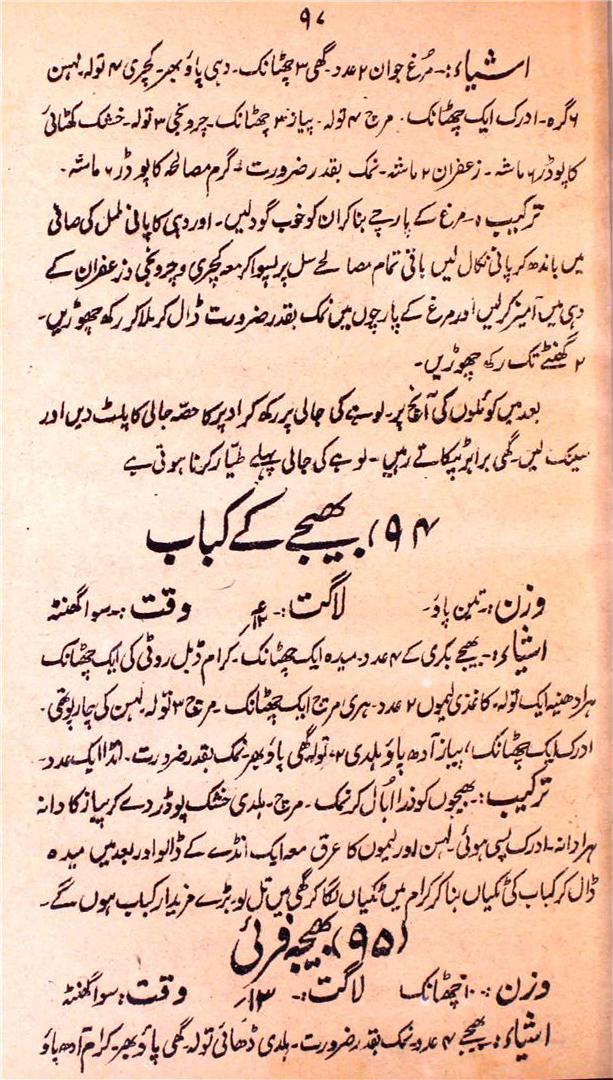 ۹۷
اشیاء:۔ مُرغ جوان ۲ عدد۔ گھی ۳ چھٹانک۔ دہی پاؤ بھر۔ کچری ۴ تولہ۔ لہسن
۶ گرہ۔ ادرک ایک چھٹانک۔ مرچ ۴ تولہ۔ پیاز ۳ چھٹانک۔ چرونجی ۳ تولہ۔ خشک کھٹائی
کا پوڈر ۶ ماشہ۔ زعفران ۲ ماشہ۔ نمک بقدر ضرورت۔ گرم مصالحہ کا پوڈر ۶ ماشہ۔
ترکیب:۔ مرغ کے پارچے بنا کر ان کو خوب گود لیں۔ اور دہی کا پانی ململ کی صافی
میں باندھ کر پانی نکال لیں باقی تمام مصالحے سل پر پسوا کر معہ کچری و چرونجی و زعفران کے
دہی میں آمیز کر لیں اور مرغ کے پارچوں میں نمک بقدر ضرورت ڈال کر ملا کر رکھ چھوڑیں۔
۲ گھنٹے تک رکھ چھوڑیں۔
بعد میں کوئلوں کی آنچ پر۔ لوہے کی جالی پر رکھ کر اوپر کا حصّہ جالی کا پلٹ دیں اور
سینک لیں۔ گھی برابر ٹپکاتے رہیں۔ لوہے کی جالی پہلے طیّار کرنا ہوتی ہے
(۹۴) بھیجے کے کباب
وزن:۔ تین پاؤ۔ لاگت:۔ وقت:۔ سوا گھنٹہ
اشیاء:۔ بھیجے بکری کے ۴ عدد۔ میدہ ایک چھٹانک۔ کرام ڈبل روٹی کی ایک چھٹانک
ہرا دھنیہ ایک تولہ۔ کاغذی لیموں ۲ عدد۔ ہری مرچ ایک چھٹانک۔ مرچ ۳ تولہ۔ لہسن کی چار پوتھی۔
ادرک ایک چھٹانک، پیاز آدھ پاؤ ہلدی ۲ تولہ گھی پاؤ بھر۔ نمک بقدر ضرورت۔ انڈا ایک عدد۔
ترکیب:۔ بھیجوں کو ذرا اُبال کر نمک۔ مرچ۔ ہلدی خشک پوڈر دے کر پیاز کا دانہ
ہرا دانہ۔ ادرک پسی ہوئی۔ لہسن اور لیموں کا عرق معہ ایک انڈے کے ڈالو اور بعد میں میدہ
ڈال کر کباب کی ٹکیاں بنا کر کرام میں ٹکیاں لگا کر گھی میں تل لو۔ بڑے مزیدار کباب ہوں گے۔
(۹۵) بھیجہ فرائی
وزن:۔ ۱۰ چھٹانک لاگت:۔ ۱۳؍ وقت:۔ سوا گھنٹہ
اشیاء:۔ بھیجے ۴ عدد۔ نمک بقدر ضرورت۔ ہلدی ڈھائی تولہ۔ گھی پاؤ بھر۔ کرام آدھ پاؤ